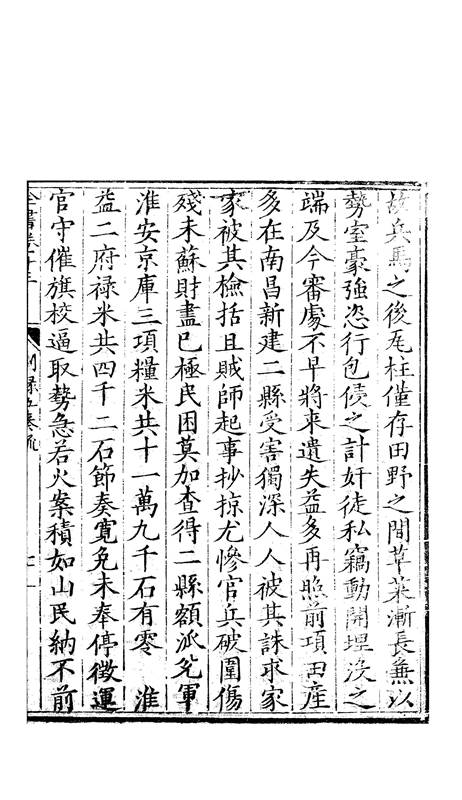 故兵馬之後尾柱僅存田野之間草萊漸長兼以
勢室豪強恣行包侵之計奸徒私竊動開埋没之
端及今審處不早將來遺失益多再照前項田産
多在南昌新建二縣受害獨深人人被其誅求家
家被其檢括且賊師起事抄掠尤慘官兵破圍傷
殘未蘇財盡已極民困莫加查得二縣額派兊軍
淮安京庫三項糧米共十一萬九千石有零 淮
益二府禄米共四千二石節奏寛免未奉停徵運
官守催旗校逼取勢急若火案積如山民納不前
全書卷之十
別録五奏疏